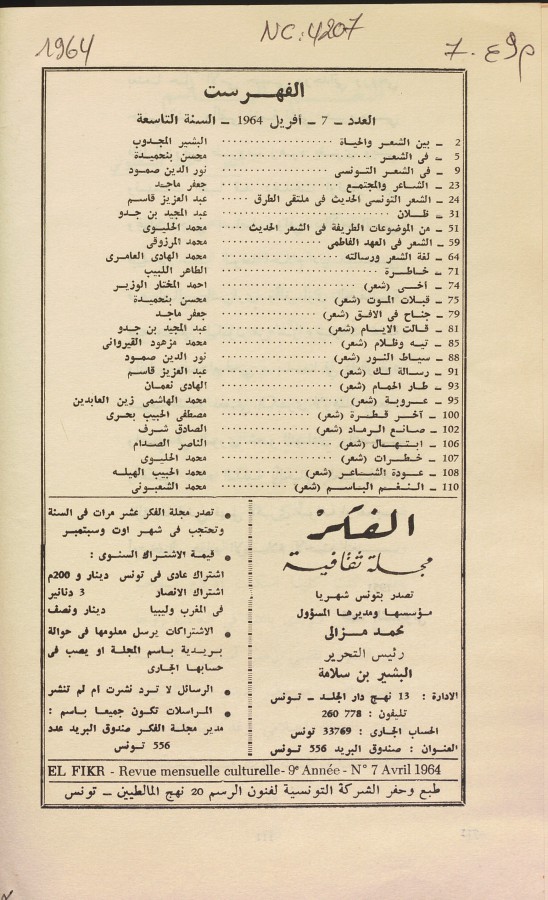 1964
NC: 4207
الفهرست
العدد - 7 - أفريل 1964 - السنة التاسعة
2 - بين الشعر والحياة البشير المجدوب
5 - فى الشعر محسن بنحميدة
9 - فى الشعر التونسى نور الدين صمود
23 - الشاعر والمجتمع جعفر ماجد
24 - الشعر التونسى الحديث فى ملتقى الطرق عبد العزيز قاسم
31 - ظلان عبد المجيد بن جدو
51 - من الموضوعات الطريفة فى الشعر الحديث محمد الحليوى
59 - الشعر فى العهد الفاطمى محمد المرزوقى
64 - لغة الشعر ورسالته محمد الهادى العامرى
71 - خاطرة الطاهر اللبيب
74 - أخى (شعر) احمد المختار الوزير
75 - قبلات الموت (شعر) محسن بنحميدة
79 - جناح فى الافق (شعر) جعفر ماجد
81 - قالت الايام (شعر) عبد المجيد بن جدو
85 - تيه وظلام (شعر) محمد مزهود القيروانى
88 - سياط النور (شعر) نور الدين صمود
91 - رسالة لك (شعر) عبد العزيز قاسم
93 - طار الحمام (شعر) الهادى نعمان
95 - عروبة (شعر) محمد الهاشمى زين العابدين
100 - آخر قطرة (شعر) مصطفى الحبيب بحرى
102 - صانع الرماد (شعر) الصادق شرف
106 - ابتهال (شعر) الناصر الصدام
107 - خطرات (شعر) محمد الحليوى
108 - عودة الشاعر (شعر) محمد الحبيب الهيله
110 - النغم الباسم (شعر) محمد الشعبونى
الفكر
مجلة ثقافية
تصدر بتونس شهريا
مؤسسها ومديرها المسؤول
محمد مزالى
رئيس التحرير
البشير بن سلامة
الادارة : 13 نهج دار الجلد - تونس
تليفون : 778 260
الحساب الجارى : 33769 تونس
العنوان : صندوق البريد 556 تونس
• تصدر مجلة الفكر عشر مرات فى السنة
وتحتجب فى شهر اوت وسبتمبر
• قيمة الاشتراك السنوى :
اشتراك عادى فى تونس دينار و 200م
اشتراك الانصار 3 دنانير
فى المغرب وليبيا دينار ونصف
• الاشتراكات يرسل معلومها فى حوالة
بريدية باسم المجلة او يصب فى
حسابها الجارى
• الرسائل لا ترد نشرت ام لم تنشر
• المراسلات تكون جميعا باسم :
مدير مجلة الفكر صندوق البريد عدد
556 تونس
EL FIKR - Revue mensuelle culturelle - 9e Année - N° 7 Avril 1964
طبع وحفر الشركة التونسية لفنون الرسم 20 نهج المالطيين - تونس